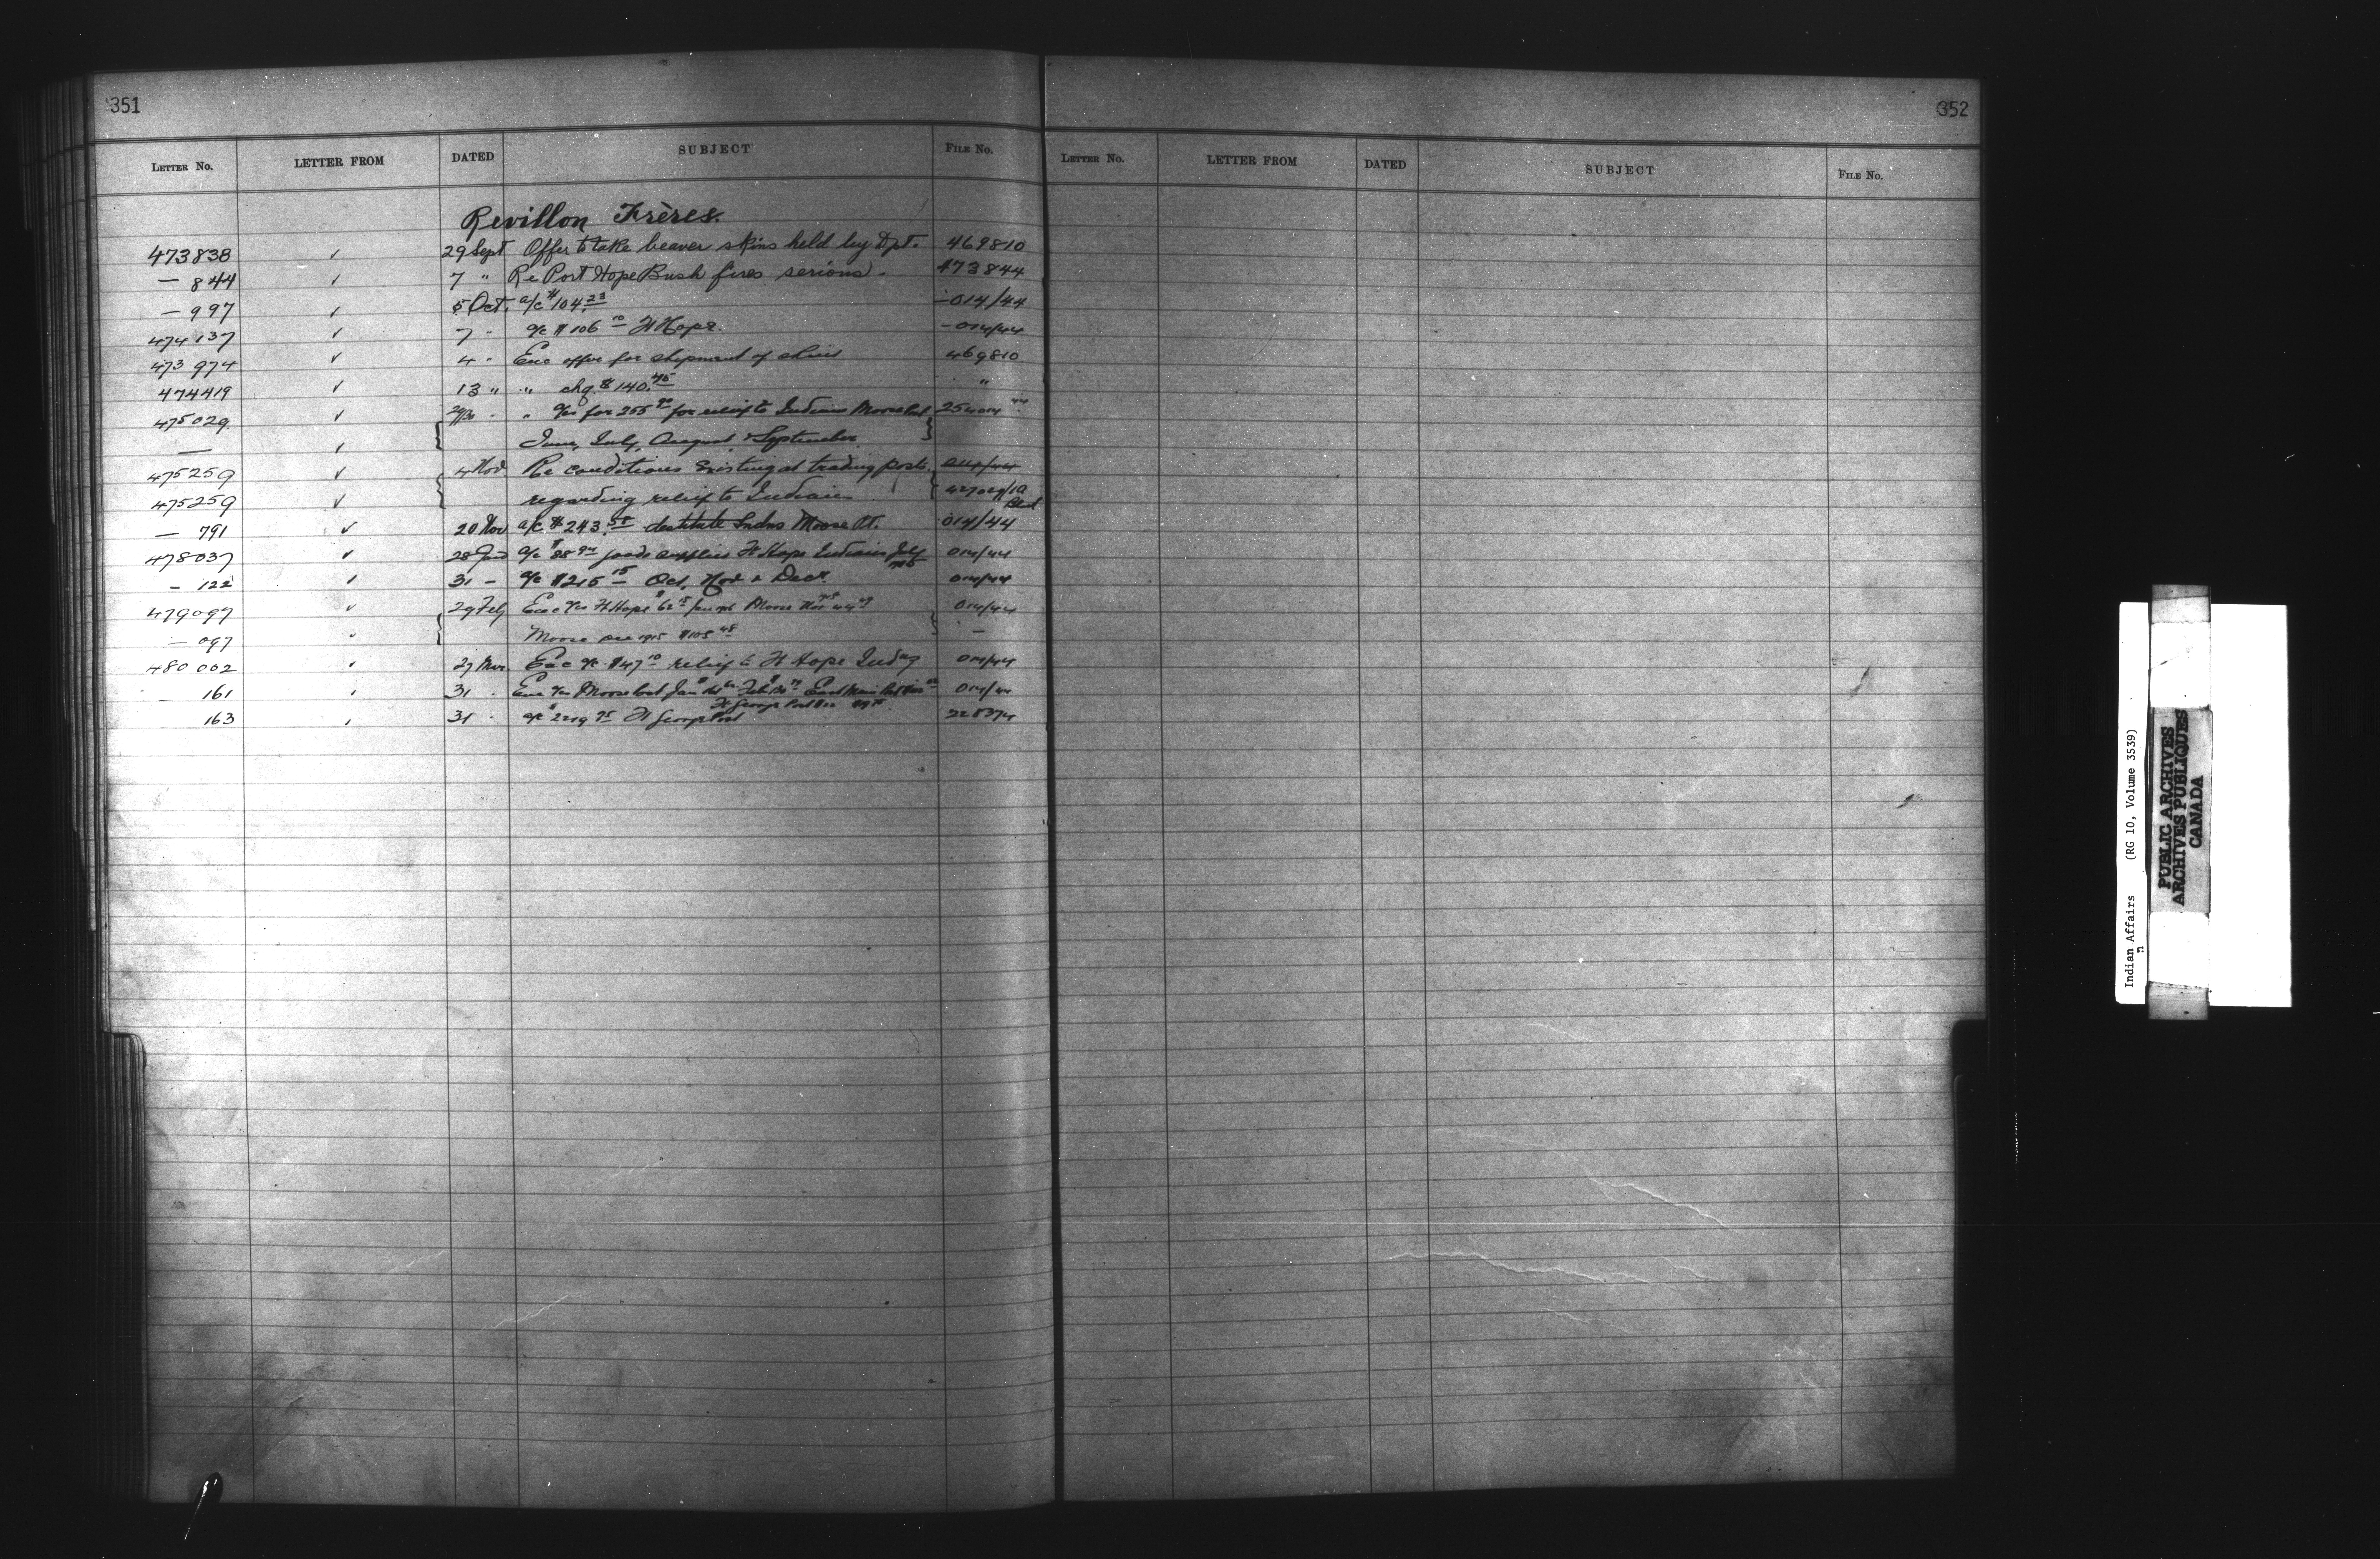 351
LETTER No. LETTER FROM DATED SUBJECT FILE No.
Revillon Frères.
473838 ✓ 29 Sept Offer to take beaver skins held by Dpt. 469810
— 844 ✓ 7 " Re Port Hope Bush fires serious. 473844
— 997 ✓ 5 Oct. a/c $104.23 — 014/44
474137 ✓ 7 " a/c $106 10 Ft Hope. — 014/44
473974 ✓ 4 " Enc offer for shipment of skins 469810
474419 ✓ 13 " " chq. $140.45 "
475029 ✓ " a/cs for 255 90 for relief to Indians Moose
— ✓ June, July, August & September
475259 ✓ 4 Nov Re conditions existing at trading posts. 014/44
475259 ✓ regarding relief to Indians 427029/1A
— 791 ✓ 20 Nov a/c $243.50 destitute Indns Moose Ft. 014/44
478037 ✓ a/c $88 goods supplies Ft Hope Indians July 014/44
— 122 ✓ 31 — a/c $215 15 Oct, Nov & Decr. 014/44
479097 ✓ 29 Feby Enc a/cs Ft Hope Moose Nov 014/44
— 097 ✓ Moose Dec 1915 $105 48 —
480002 ✓ 27 Mar. Enc a/c $47 10 relief to Ft Hope Indns 014/44
161 ✓ 31 . Enc a/cs Moose Post Jan Feb East Main Post 014/44
Ft George Post Dec
163 ✓ 31 . a/c $2219 75 Ft George Post
352
LETTER No. LETTER FROM DATED SUBJECT FILE No.
Indian Affairs (RG 10, Volume 3539)
PUBLIC ARCHIVES
ARCHIVES PUBLIQUES
CANADA